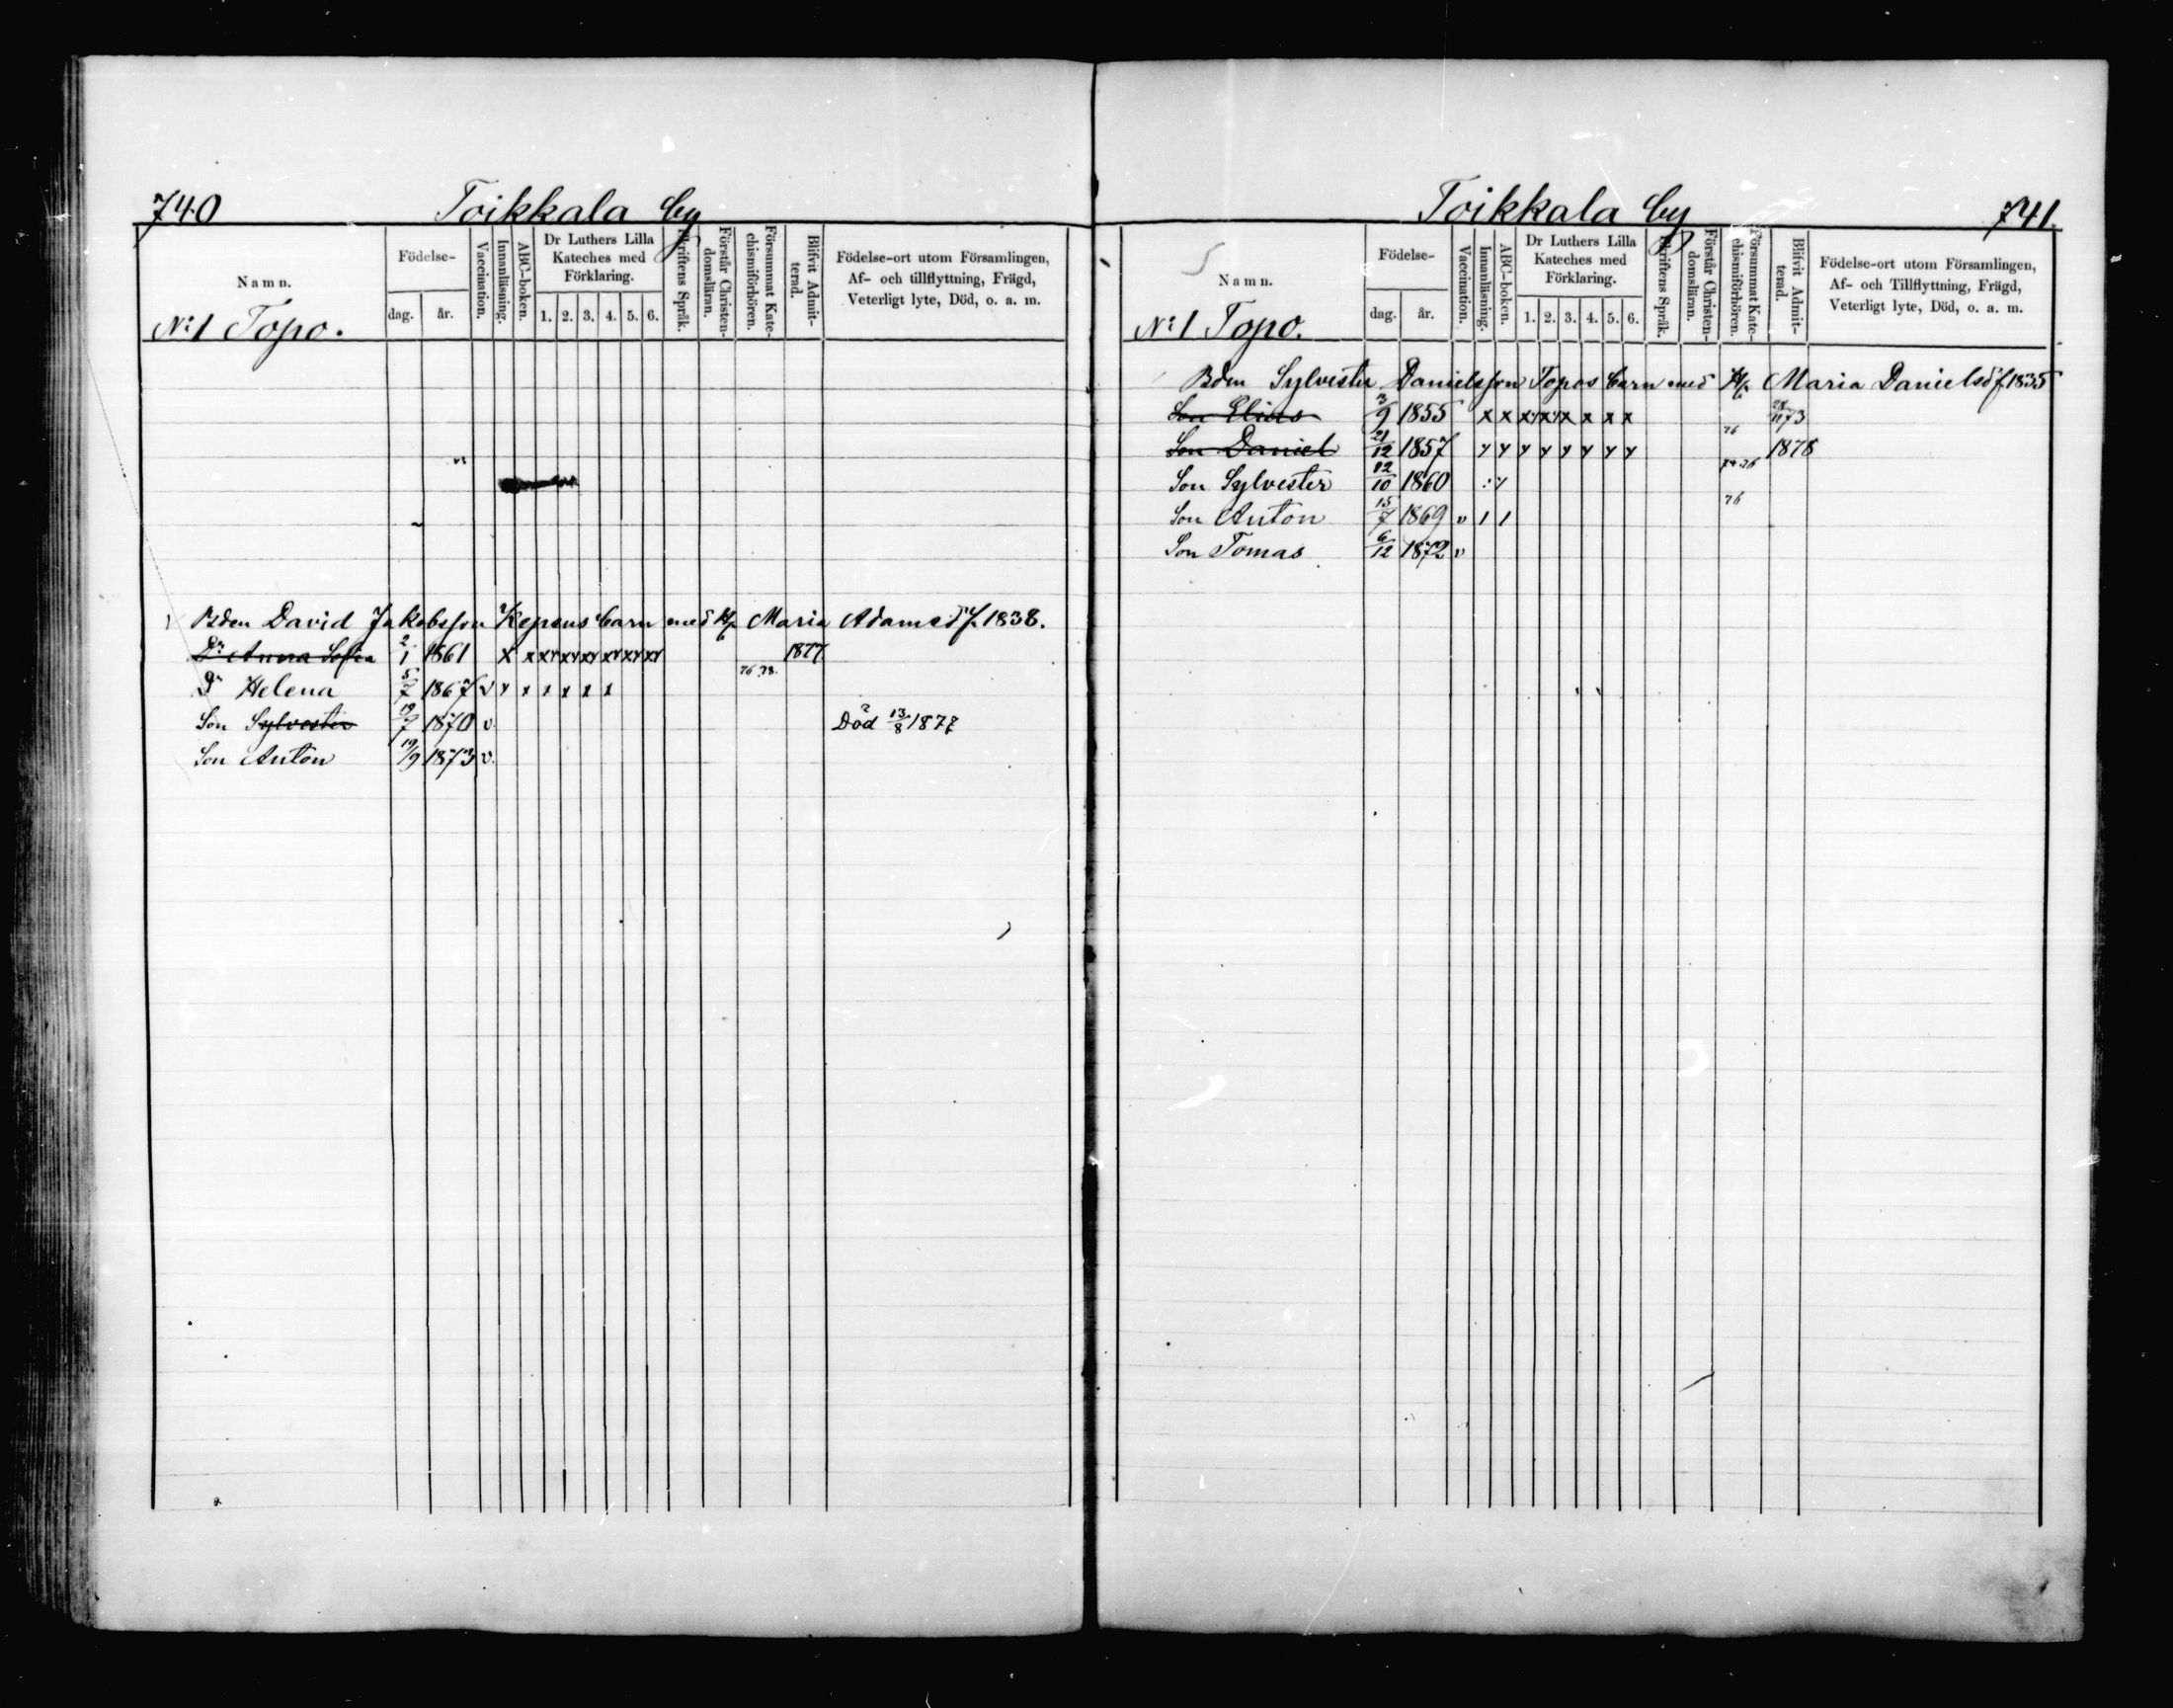 740 Toikkala by
Namn. Födelse- dag. år. Vaccination. Innanläsning. ABC-boken. Dr Luthers Lilla Kateches med Förklaring. 1. 2. 3. 4. 5. 6. Skriftens Språk. Förstår Christen-domsläran. Försummat Kate-chismiförhören. Blifvit Admit-terad. Födelse-ort utom Församlingen, Af- och tillflyttning, Frägd, Veterligt lyte, Död, o. a. m.
No 1 Topo.
Bden David Jakobsson Kepsus barn med H. Maria Adamsd f. 1838.
Dr Anna Sofia 2/1 1861 X x xy xy xy xy xy xy 1877
Dr Helena 5/7 1867 v y x x x x x 76 78.
Son Sylvester 19/7 1870 v. Död 13/8 1877
Son Anton 19/9 1873 v.
Toikkala by 741.
Namn. Födelse- dag. år. Vaccination. Innanläsning. ABC-boken. Dr Luthers Lilla Kateches med Förklaring. 1. 2. 3. 4. 5. 6. Skriftens Språk. Förstår Christen-domsläran. Försummat Kate-chismiförhören. Blifvit Admit-terad. Födelse-ort utom Församlingen, Af- och Tillflyttning, Frägd, Veterligt lyte, Död, o. a. m.
No 1 Topo.
Bden Sylvester Danielsson Topos barn med H. Maria Danielsd f. 1835
Son Elias 3/9 1855 x x x x x x x x 73
Son Daniel 21/12 1857 y y y y y y y y 76 1878
Son Sylvester 12/10 1860
Son Anton 15/7 1869 v 1 1 76
Son Tomas 6/12 1872 v